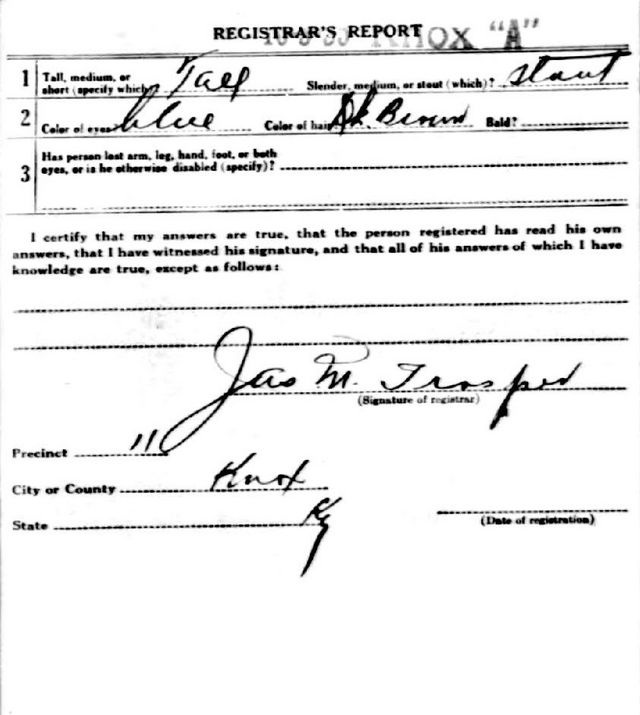 REGISTRAR'S REPORT
KNOX "A"
1 Tall, medium, or short (specify which) Tall Slender, medium, or stout (which)? stout
2 Color of eyes blue Color of hair Dk. Brown Bald?
3 Has person lost arm, leg, hand, foot, or both
eyes, or is he otherwise disabled (specify)?
I certify that my answers are true, that the person registered has read his own
answers, that I have witnessed his signature, and that all of his answers of which I have
knowledge are true, except as follows:
Jas M. Trosper
(Signature of registrar)
Precinct 11
City or County Knox
State Ky
(Date of registration)